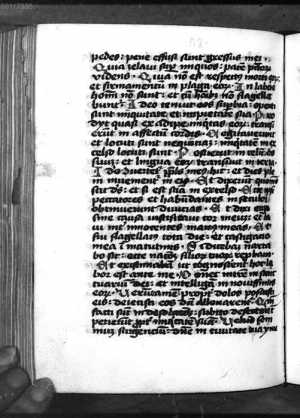 pedes: pene effusi sunt gressus mei.
Quia zelaui sup iniquos: pacē pctorꝝ
videns. Quia nō est respectꝰ morti eoꝝ
et firmamentū in plaga eoꝝ. In labore
hoīm nō sunt: et cū hoībꝫ nō flagella
bunt̄. Ideo tenuit eos supbia: operti
sunt iniquitate et impietate sua. Pro
dyt quasi ex adipe iniqtas eoꝝ: transi
erūt in affectū cordis. Cogitauerunt
et locuti sunt nequitiā: iniqtatē in ex
celso locuti sunt. Posuerūt in celū os
suū: et lingua eoꝝ transiuit in terra.
Ideo cōuertet̄ ppls meus hic: et dies ple
ni inuenient̄ in eis. Et dixerūt quō
scit ds: et si est scīa in excelso. Ecce ipi
peccatores et habundantes in seculo
obtinuerunt diuitias. Et dixi ergo
sine causa iustificaui cor meū: et la
ui int̄ innocentes manꝰ meas. Et
fui flagellatꝰ tota die: et castigatio
mea i matutinis. Si dicebā narra
bo sic: ecce nacōꝫ filiorū tuoꝝ reprobaui.
Existimabā ut cognoscerem: hoc la
bor est ante me. Donec intrē in sanc
tuariū dei: et intelligā in nouissimis
eoꝝ. Verūtamē propt̄ dolos posuisti
eis: deiecisti eos dum alleuarent̄. Quō
facti sūt in desolacōꝫ: subito defecerūt
perierūt ppt̄ iniqtatē suā. Velud som
niū surgentiū: dn̄e in ciuitate tua ymā